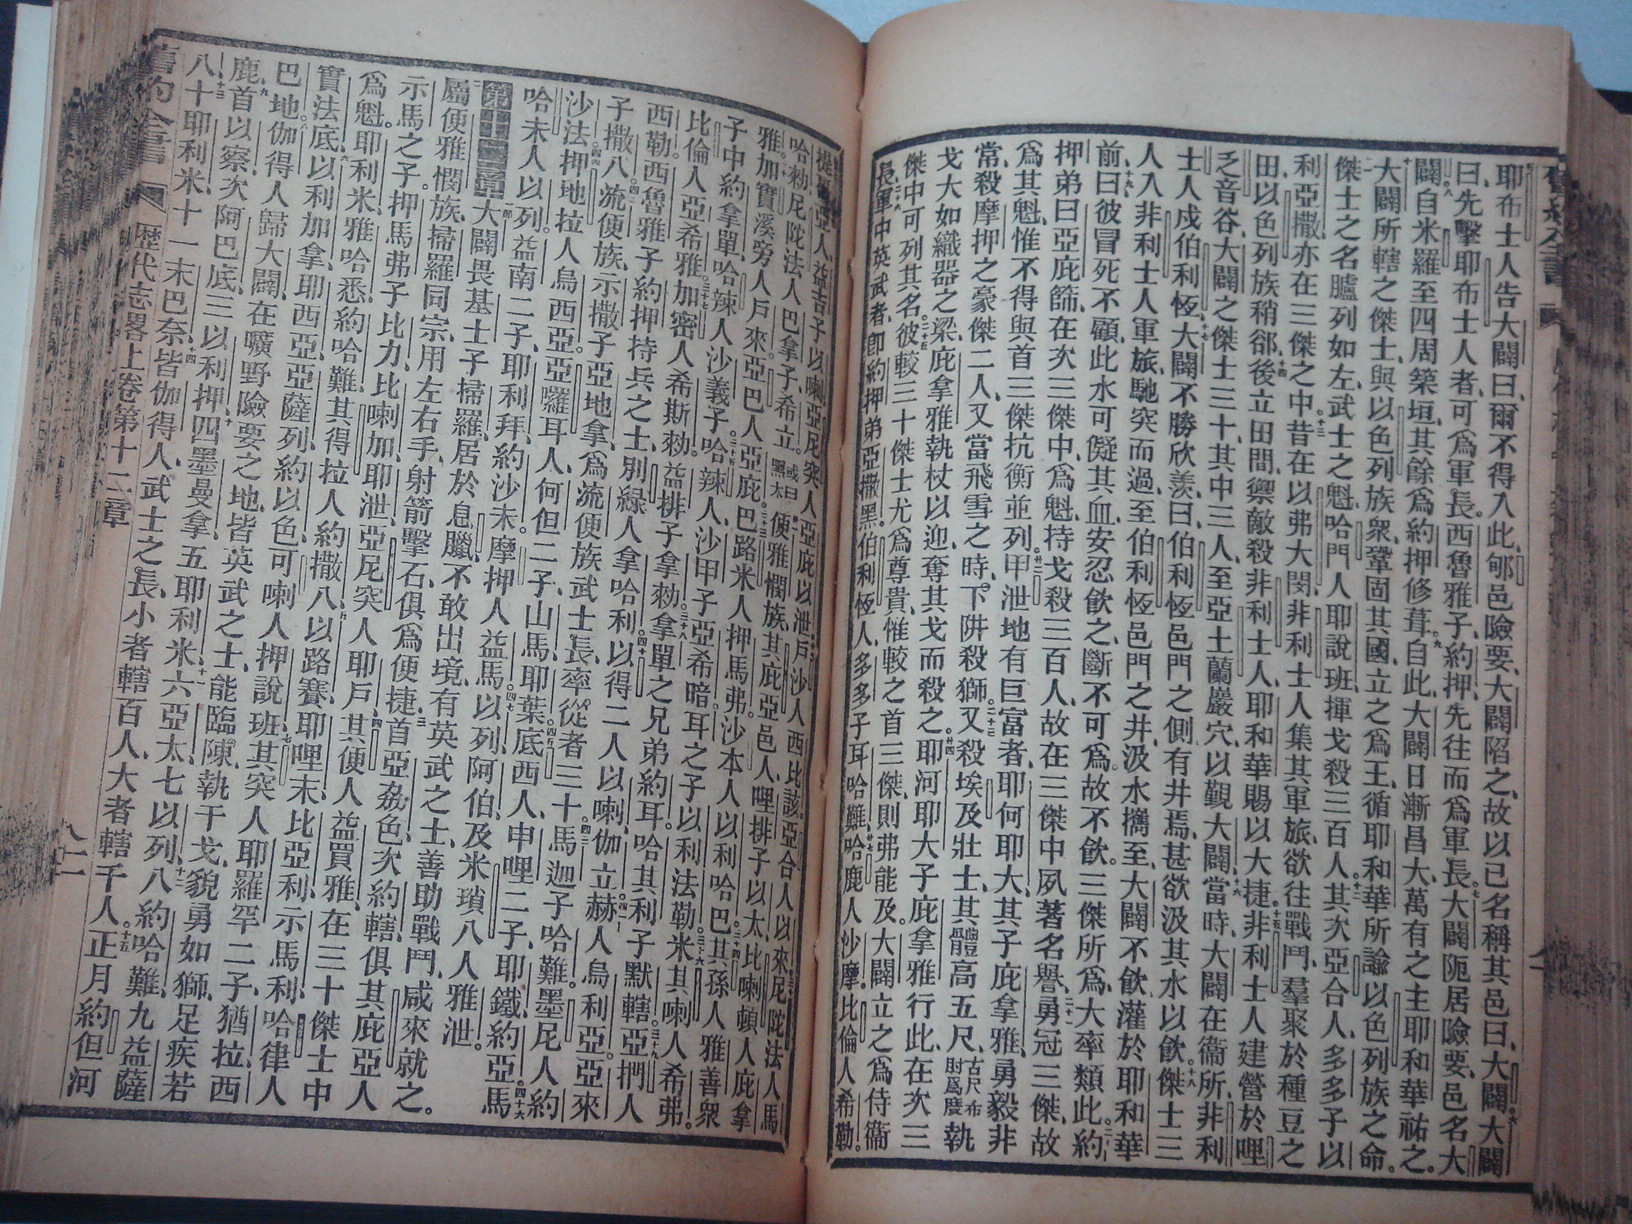 耶布士人告大闢曰爾不得入此郇邑險要大闢陷之故以己名稱其邑曰大闢大闢
曰先擊耶布士人者可爲軍長西魯雅子約押先往而爲軍長大闢阨居險要邑名大
闢自米羅至四周築垣其餘爲約押修葺自此大闢日漸昌大萬有之主耶和華祐之
大闢所轄之傑士與以色列族衆鞏固其國立之爲王循耶和華所諭以色列族之命
傑士之名臚列如左武士之魁哈門人耶說班揮戈殺三百人其次亞合人多多子以
利亞撒亦在三傑之中昔在以弗大閔非利士人集其軍旅欲往戰鬥羣聚於種豆之
田以色列族稍郤後立田間禦敵殺非利士人耶和華賜以大捷非利士人建營於哩
乏音谷大闢之傑士三十其中三人至亞土蘭巖穴以覲大闢當時大闢在衞所非利
士人戍伯利恆大闢不勝欣羨曰伯利恆邑門之側有井焉甚欲汲其水以飲傑士三
人入非利士人軍旅馳突而過至伯利恆邑門之井汲水攜至大闢不飲灌於耶和華
前曰彼冒死不顧此水可儗其血安忍飲之斷不可爲故不飲三傑所爲大率類此約
押弟曰亞庇篩在次三傑中爲魁持戈殺三百人故在三傑中夙著名譽勇冠三傑故
爲其魁惟不得與首三傑抗衡並列甲泄地有巨富者耶何耶大其子庇拿雅勇毅非
常殺摩押之豪傑二人又當飛雪之時下阱殺獅又殺埃及壯士其體高五尺古尺布肘爲度執
戈大如織器之梁庇拿雅執杖以迎奪其戈而殺之耶河耶大子庇拿雅行此在次三
傑中可列其名彼較三十傑士尤爲尊貴惟較之首三傑則弗能及大闢立之爲侍衞
長軍中英武者卽約押弟亞撒黑伯利恆人多多子耳哈難哈鹿人沙摩比倫人希勒
提哥亞人益吉子以喇亞尼突人亞庇以泄戶沙人西比該亞合人以來尼陀法人馬
哈勑尼陀法人巴拿子希立或曰黑太便雅憫族其庇亞邑人哩排子以太比喇頓人庇拿
雅加實溪旁人戶來亞巴人亞庇巴路米人押馬弗沙本人以利哈巴其孫人雅善衆
子中約拿單哈辣人沙義子哈辣人沙甲子亞希暗耳之子以利法勒米其喇人希弗
比倫人亞希雅加密人希斯勑益排子拿勑拿單之兄弟約耳哈其利子默轄亞捫人
西勒西魯雅子約押持兵之士別綠人拿哈利以得二人以喇伽立赫人烏利亞亞來
子撒八流便族示撒子亞地拿爲流便族武士長率從者三十馬迦子哈難墨尼人約
沙法押地拉人烏西亞亞囉耳人何但二子山馬耶葉底西人申哩二子耶鐵約亞馬
哈未人以列益南二子耶利拜約沙未摩押人益馬以列阿伯及米瑣八人雅泄
第十二章大闢畏基士子掃羅居於息臘不敢出境有英武之士善助戰鬥咸來就之
屬便雅憫族掃羅同宗用左右手射箭擊石俱爲便捷首亞希色次約轄俱其庇亞人
示馬之子押馬弗子比力比喇加耶泄亞尼突人耶戶其便人益買雅在三十傑士中
爲魁耶利米雅哈悉約哈難其得拉人約撒八以路賽耶哩末比亞利示馬利哈律人
實法底以利加拿耶西亞亞薩列約以色可喇人押說班其突人耶羅罕二子猶拉西
巴地伽得人歸大闢在曠野險要之地皆英武之士能臨陳執干戈貌勇如獅足疾若
鹿首以察次阿巴底三以利押四墨曼拿五耶利米六亞太七以列八約哈難九益薩
八十耶利米十一末巴奈皆伽得人武士之長小者轄百人大者轄千人正月約但河
舊約全書 歷代志畧上卷第十二章 八十一